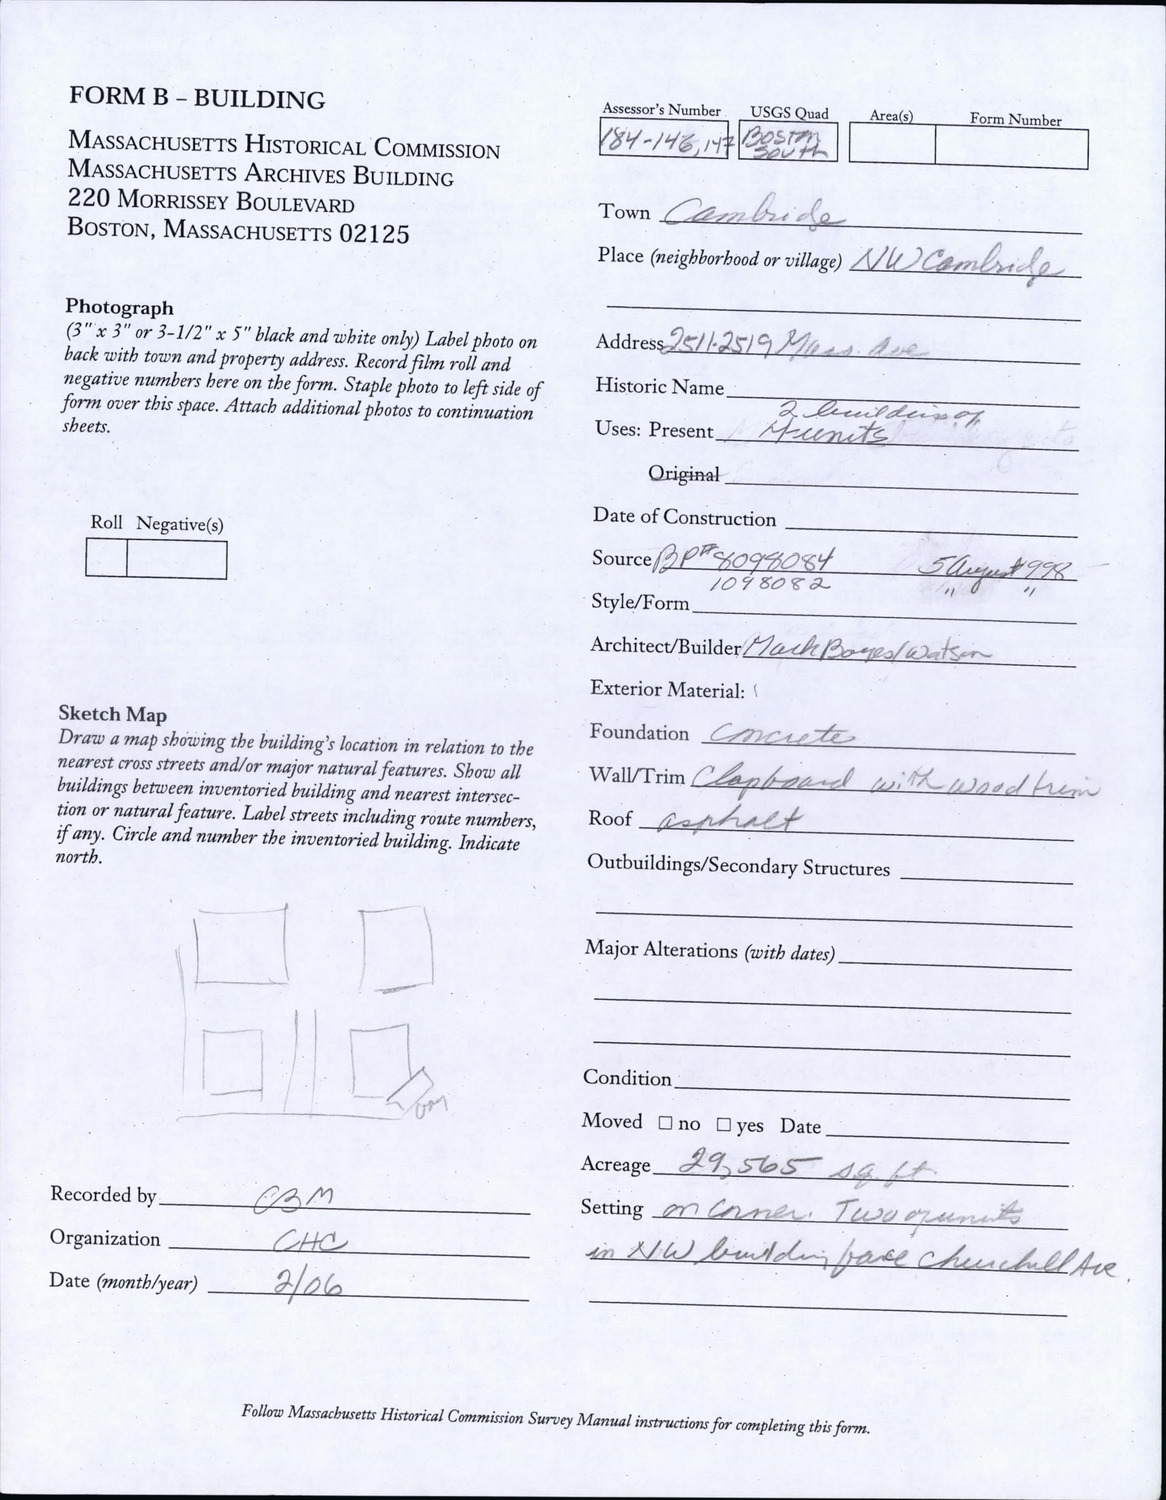 FORM B – BUILDING
MASSACHUSETTS HISTORICAL COMMISSION
MASSACHUSETTS ARCHIVES BUILDING
220 MORRISSEY BOULEVARD
BOSTON, MASSACHUSETTS 02125
Photograph
(3" x 3" or 3-1/2" x 5" black and white only) Label photo on
back with town and property address. Record film roll and
negative numbers here on the form. Staple photo to left side of
form over this space. Attach additional photos to continuation
sheets.
Roll Negative(s)
Sketch Map
Draw a map showing the building's location in relation to the
nearest cross streets and/or major natural features. Show all
buildings between inventoried building and nearest intersec-
tion or natural feature. Label streets including route numbers,
if any. Circle and number the inventoried building. Indicate
north.
Recorded by CBM
Organization CHC
Date (month/year) 2/06
Assessor's Number USGS Quad Area(s) Form Number
184-146,147 BOSTON
SOUTH
Town Cambridge
Place (neighborhood or village) NW Cambridge
Address 2511-2519 Mass. Ave
Historic Name
2 buildings of
Uses: Present 4 units
Original
Date of Construction
Source BP# 8098084 5 August 1998
1098082 " "
Style/Form
Architect/Builder Mark Boyes/Watson
Exterior Material:
Foundation Concrete
Wall/Trim Clapboard with wood trim
Roof asphalt
Outbuildings/Secondary Structures
Major Alterations (with dates)
Condition
Moved ☐ no ☐ yes Date
Acreage 29,565 sq. ft.
Setting on corner. Two of units
in NW building face Churchill Ave.
Follow Massachusetts Historical Commission Survey Manual instructions for completing this form.